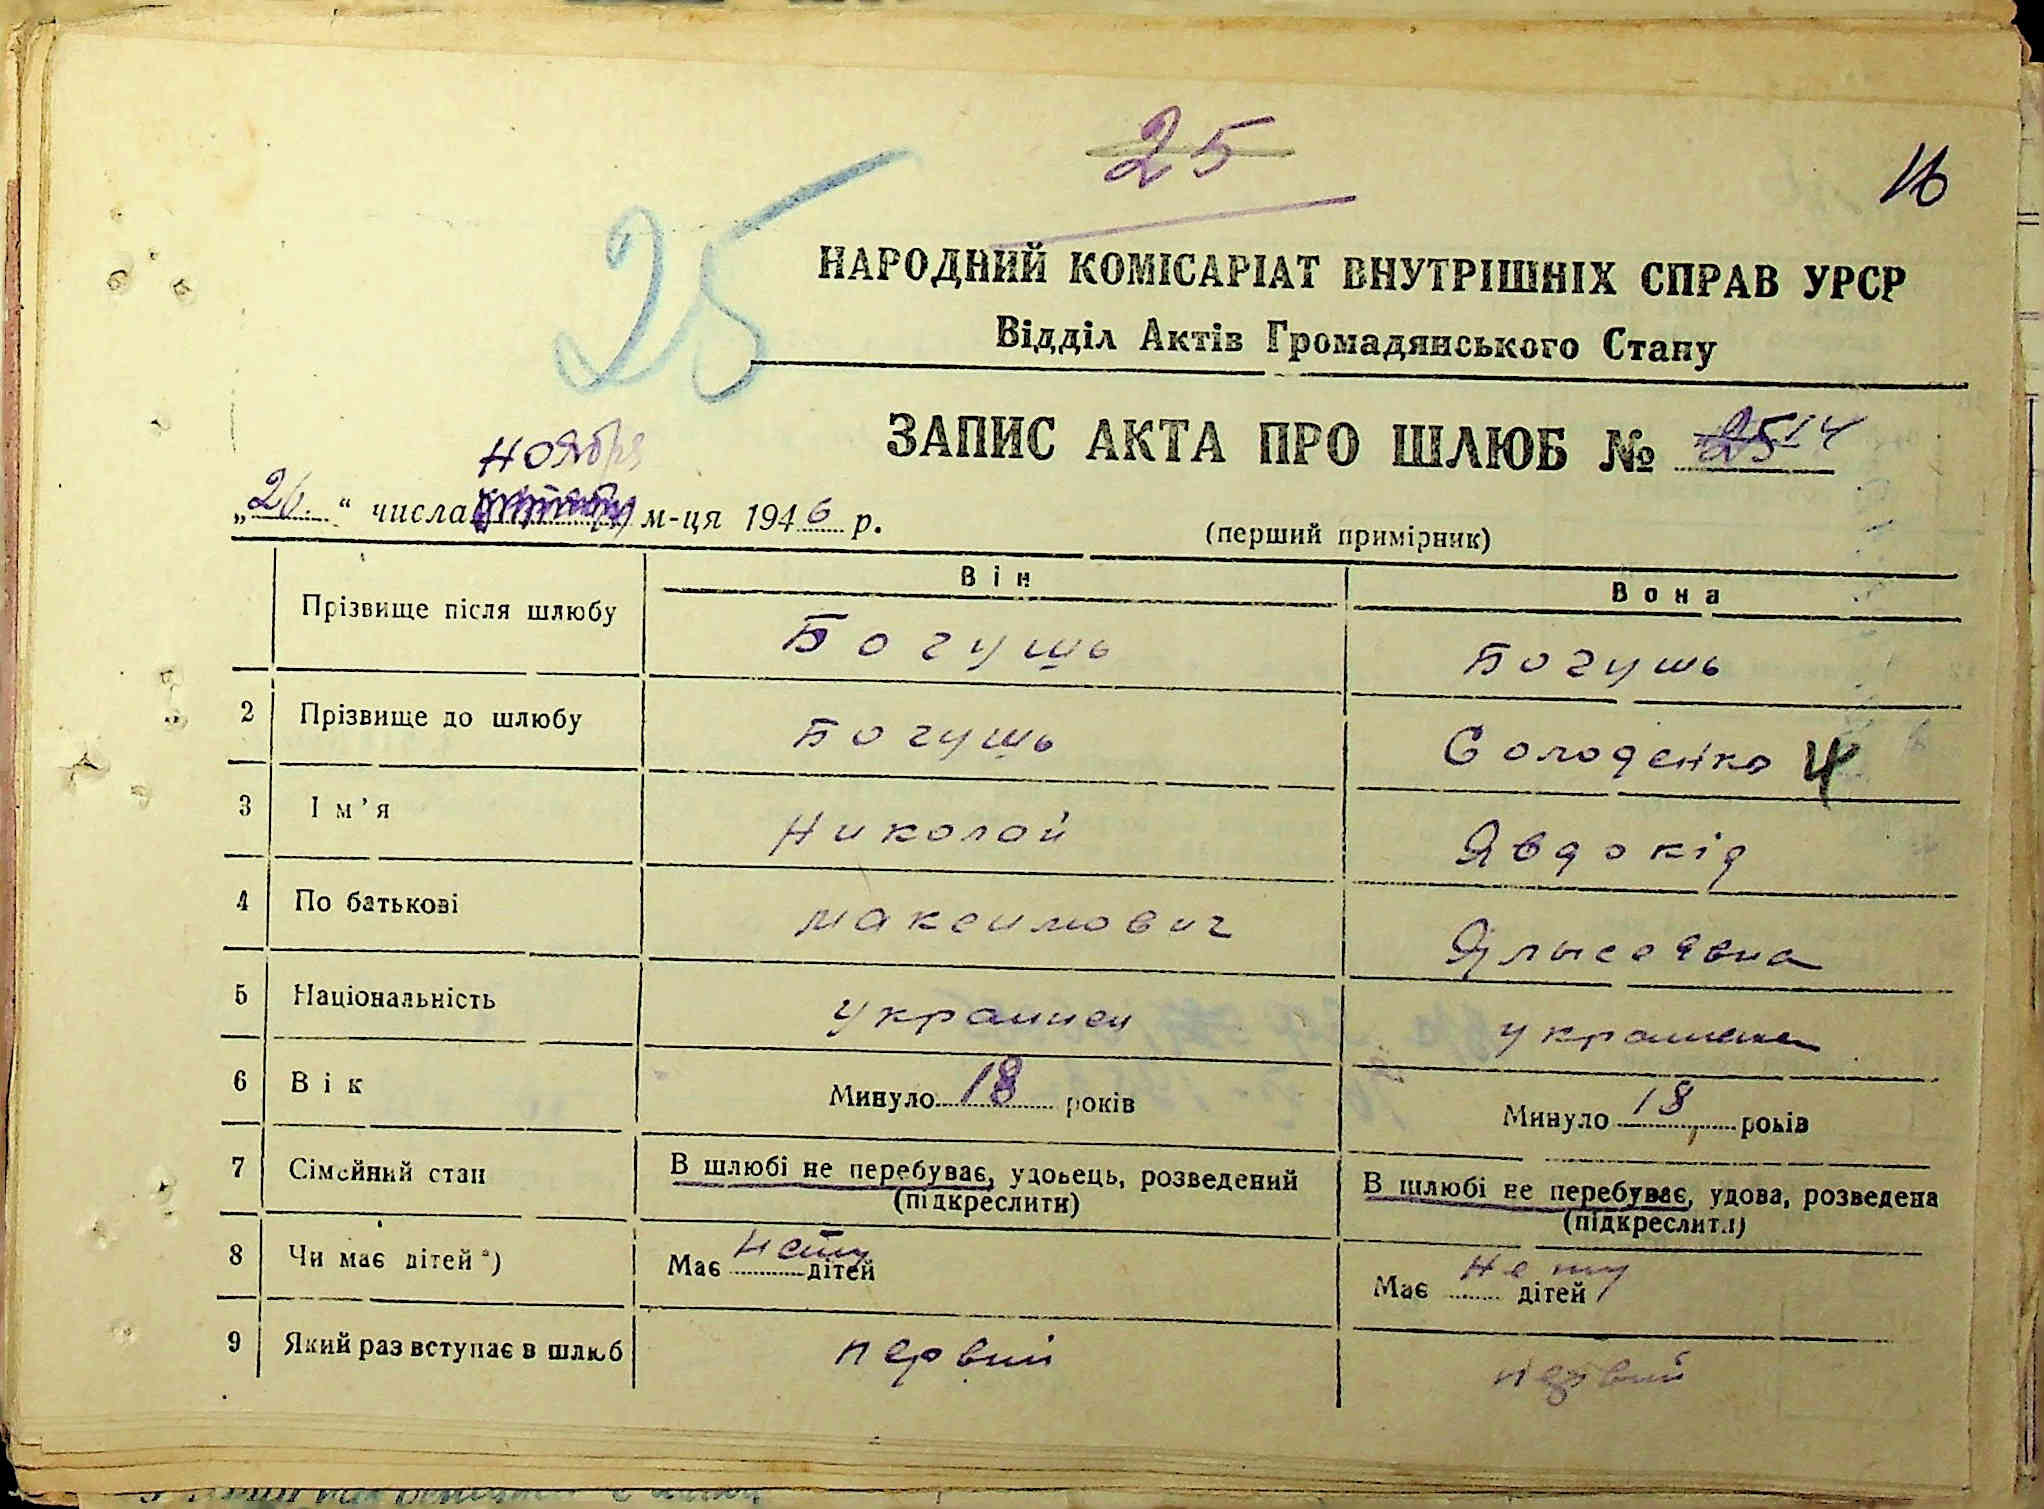 25
16
25
НАРОДНИЙ КОМІСАРІАТ ВНУТРІШНІХ СПРАВ УРСР
Відділ Актів Громадянського Стану
ЗАПИС АКТА ПРО ШЛЮБ № 25 14
ноября
„26.“ числа м-ця 1946 р.
(перший примірник)
Він Вона
Прізвище після шлюбу Богушь Богушь
2 Прізвище до шлюбу Богушь Солоденко
3 Ім’я Николай Явдокія
4 По батькові Максимович
5 Національність украинец украинка
6 Вік Минуло 18 років Минуло 18 років
7 Сімейний стан В шлюбі не перебуває, удовець, розведений (підкреслити) В шлюбі не перебуває, удова, розведена (підкреслити)
8 Чи має дітей*) Має нету дітей Має нету дітей
9 Який раз вступає в шлюб первий первий